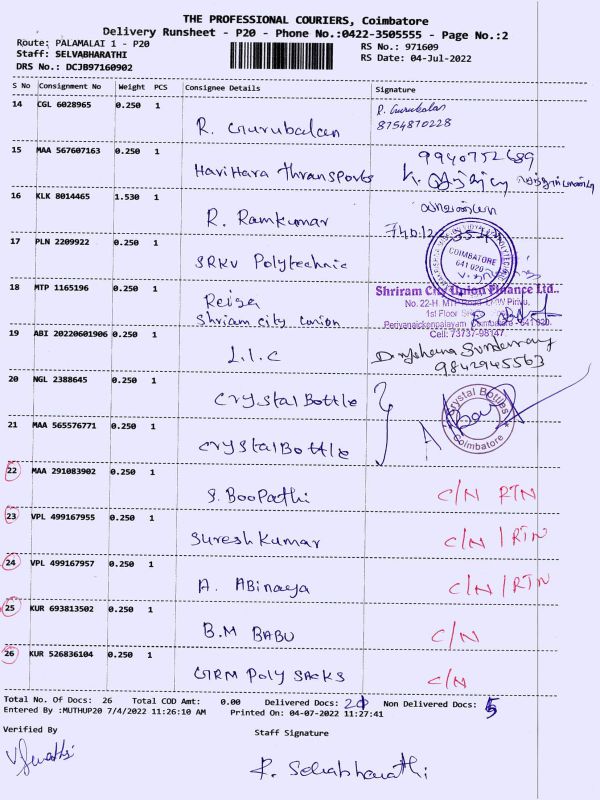 THE PROFESSIONAL COURIERS, Coimbatore
Delivery Runsheet - P20 - Phone No.:0422-3505555 - Page No.:2
Route: PALAMALAI 1 - P20
RS No.: 971609
Staff: SELVABHARATHI
RS Date: 04-Jul-2022
DRS No.: DCJB97160902
S No Consignment No Weight PCS Consignee Details Signature
14 CGL 6028965 0.250 1 R. Gurubalan R. Gurubalan
8754870228
15 MAA 567607163 0.250 1 HariHara Thransports 9940752689
16 KLK 8014465 1.530 1 R. Ramkumar
17 PLN 2209922 0.250 1 SRKV Polytechnic COIMBATORE
641 020
18 MTP 1165196 0.250 1 Shriram City Union Finance Ltd.,
No. 22-H, MTP Road,
1st Floor
Shriam city union Periyanaickenpalayam, Coimbatore - 641 020.
19 ABI 20220601906 0.250 1 L.I.C Cell: 73737-98147
9842945563
20 NGL 2388645 0.250 1 Crystal Bottle Crystal Bottles
Coimbatore
21 MAA 565576771 0.250 1 Crystal Bottle
22 MAA 291083902 0.250 1 S. Boopathi C/N RTN
23 VPL 499167955 0.250 1 Suresh Kumar C/N / RTN
24 VPL 499167957 0.250 1 A. Abinaya C/N / RTN
25 KUR 693813502 0.250 1 B.M BABU C/N
26 KUR 526836104 0.250 1 GRM Poly SACKS C/N
Total No. Of Docs: 26 Total COD Amt: 0.00 Delivered Docs: Non Delivered Docs: 5
Entered By :MUTHUP20 7/4/2022 11:26:10 AM Printed On: 04-07-2022 11:27:41
Verified By
Staff Signature
R. Selvabharathi